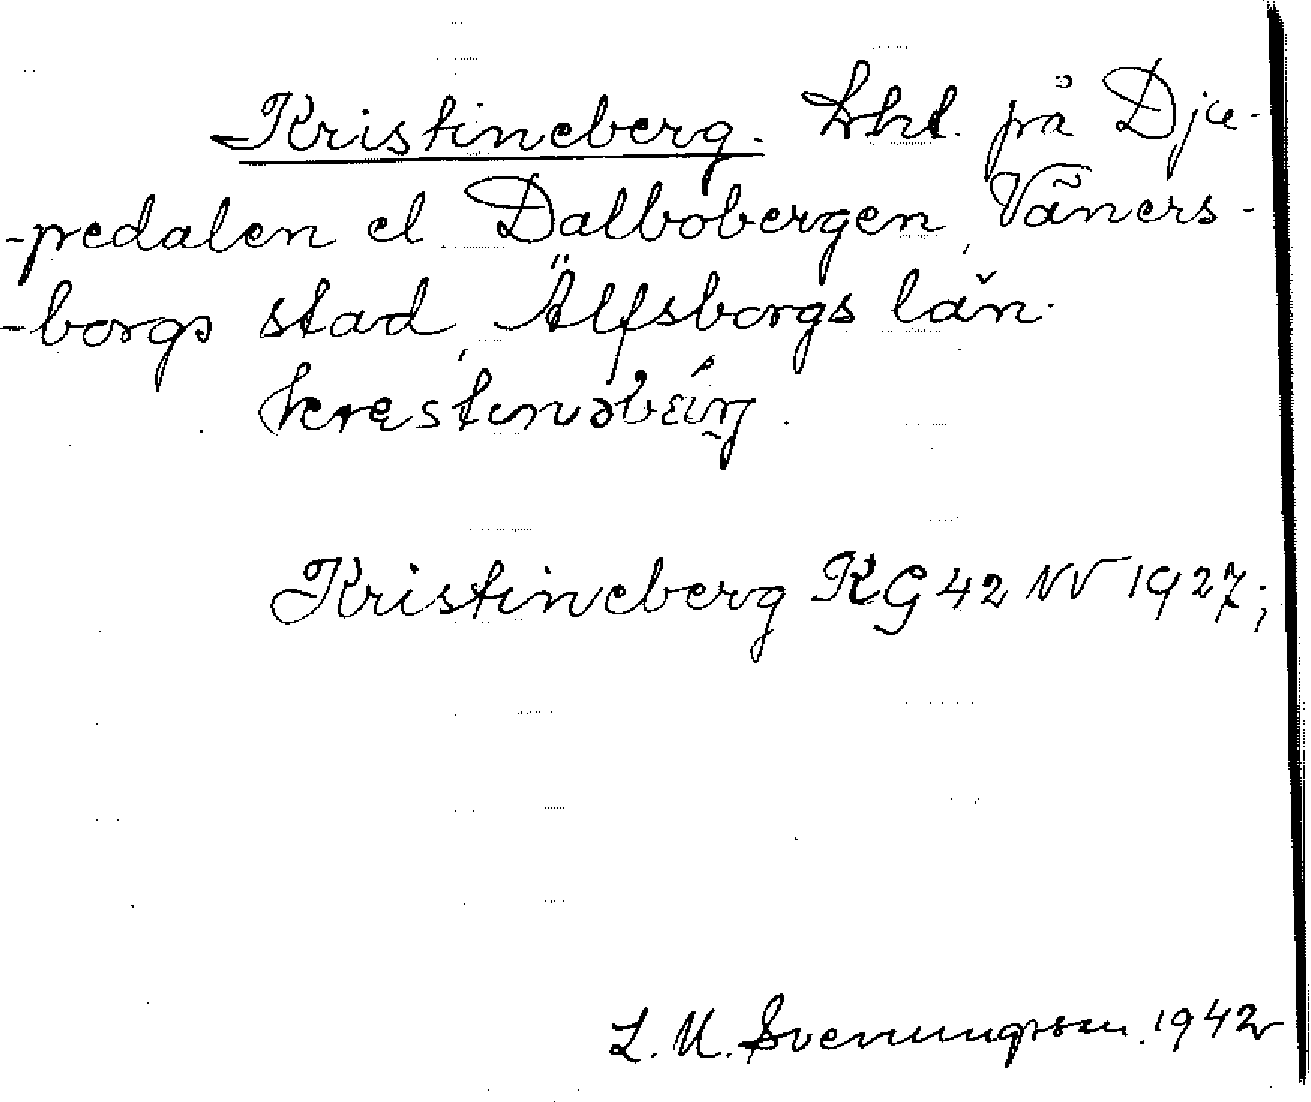 Kristineberg. Lht. på Dju-
-pedalen el Dalbobergen, Väners-
-borgs stad, Älfsborgs län.
Kristineberg KG 42 NV 1927;
L. M. Svenungsson. 1942